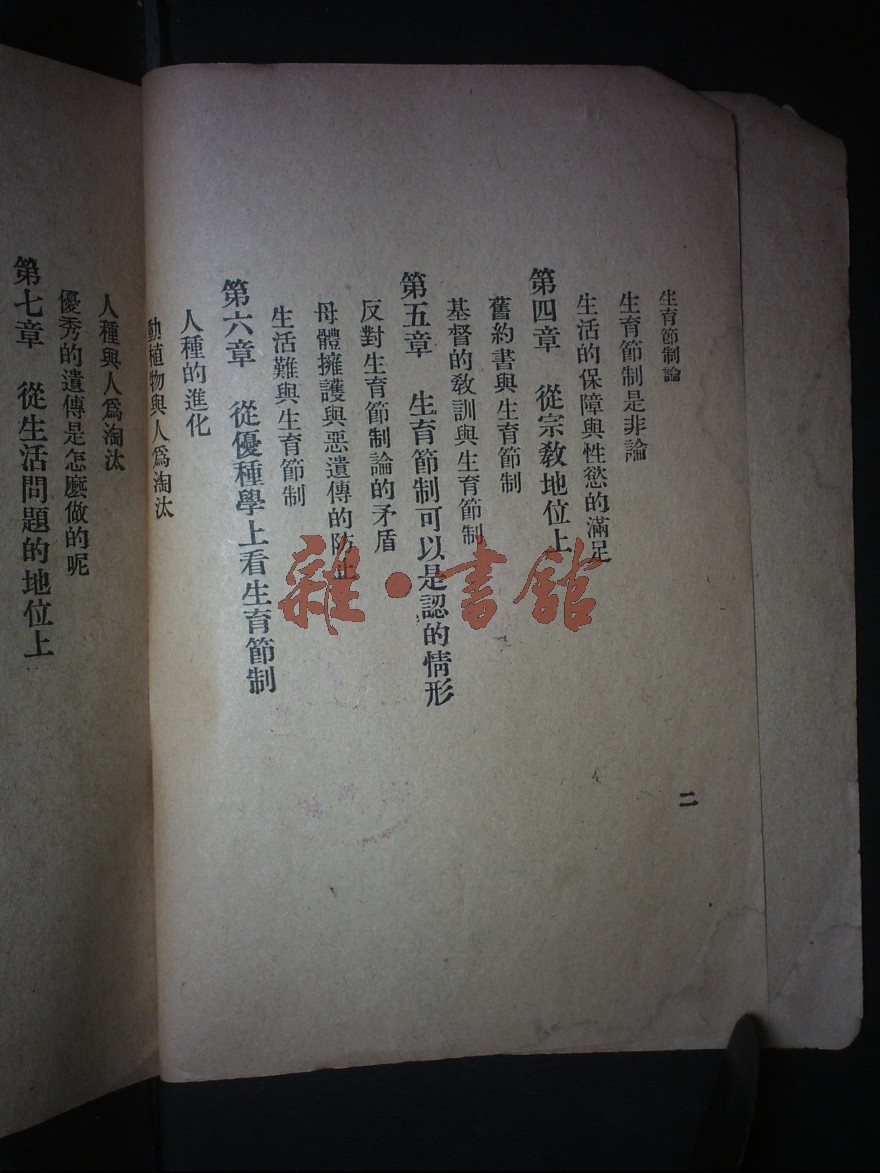 生育節制論
生育節制是非論
生活的保障與性慾的滿足
第四章　從宗教地位上
舊約書與生育節制
基督的教訓與生育節制
第五章　生育節制可以是認的情形
反對生育節制論的矛盾
母體擁護與惡遺傳的防止
生活難與生育節制
第六章　從優種學上看生育節制
人種的進化
動植物與人爲淘汰
人種與人爲淘汰
優秀的遺傳是怎麽做的呢
第七章　從生活問題的地位上
二
雜·書館